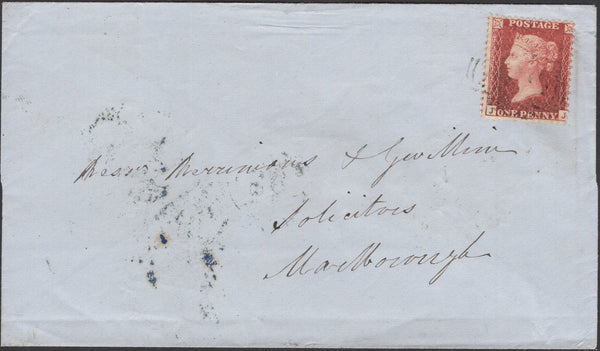 POSTAGE
J ONE PENNY J
Messrs Merrimans & Gwillim
Solicitors
Marlborough